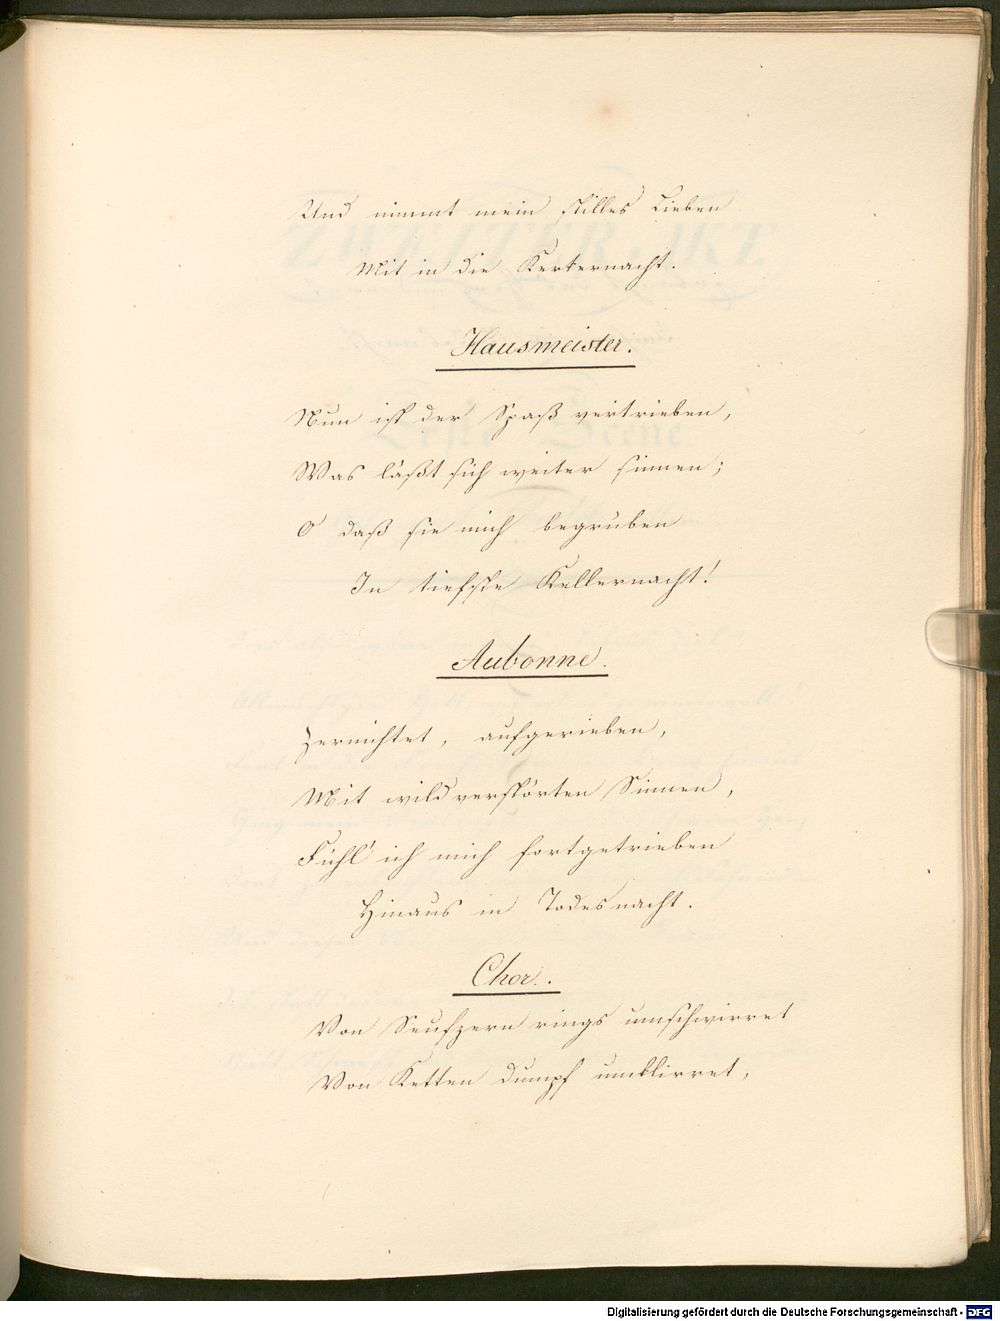 Und nimmt mein stilles Lieben
Mit in die Kerkernacht.
Hausmeister.
Nun ist der Spaß vertrieben,
Was läßt sich weiter sinnen;
O daß sie mich begrüben
In tiefste Kellernacht!
Aubonne.
Zernichtet, aufgerieben,
Mit wild verstörten Sinnen,
Fühl' ich mich fortgetrieben
Hinaus in Todesnacht.
Chor.
Von Seufzern rings umschwirret
Von Ketten dumpf umklirret,
Digitalisierung gefördert durch die Deutsche Forschungsgemeinschaft - DFG